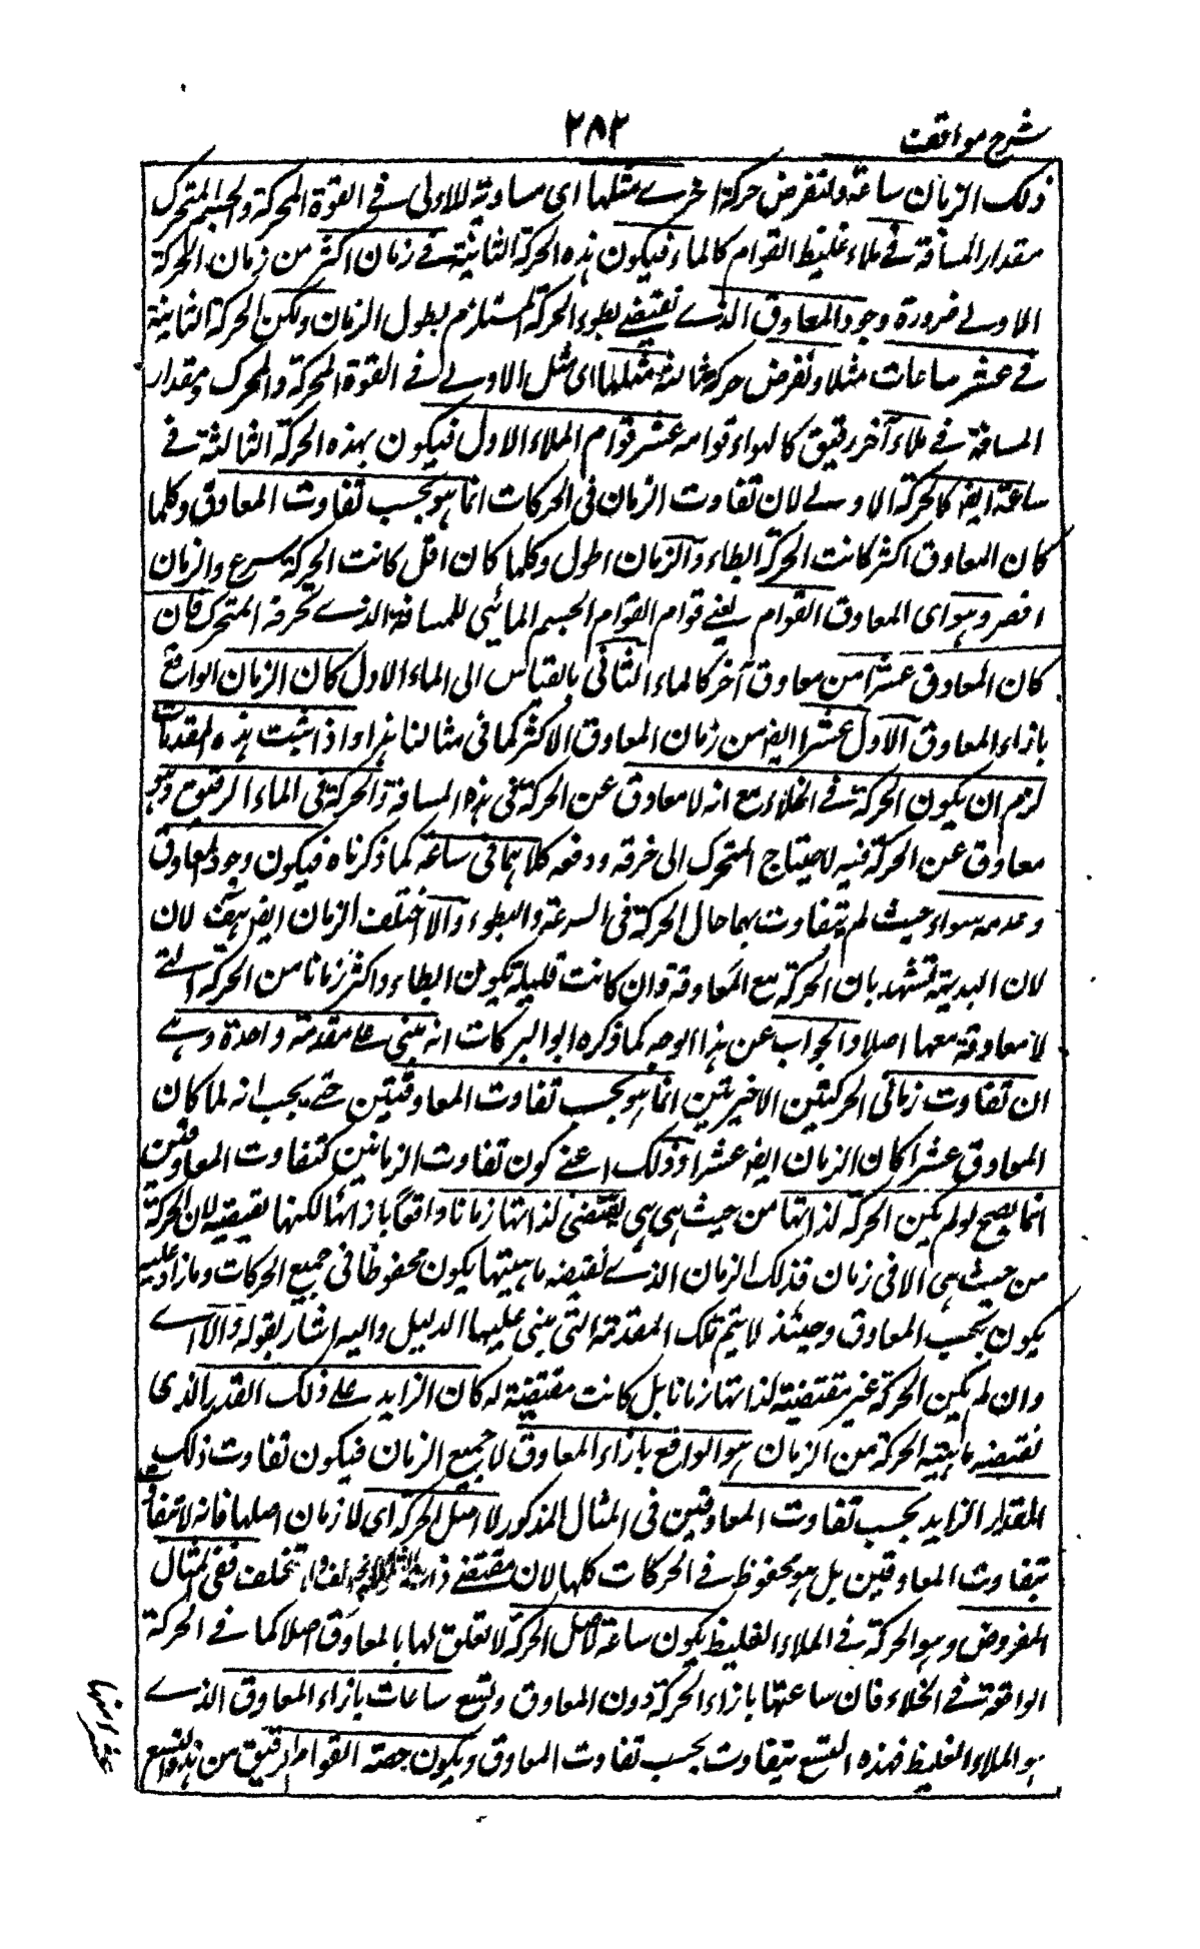 شرح مواقف
٢٨٢
ذلك الزمان ساعة ولنفرض حركة اخرے مثلها اى مساوية للاولى فے القوة المحركة والجسم المتحرك
مقدار المسافة فے ملاء غليظ القوام كالماء فيكون هذه الحركة الثانية فے زمان اكثر من زمان الحركة
الاولے ضرورة وجود المعاوق الذے يقتضے بطوء الحركة المستلزم لطول الزمان وليكن الحركة الثانية
فے عشر ساعات مثلا ونفرض حركة ثالثة مثلها اى مثل الاولے فے القوة المحركة والمحرك ومقدار
المسافة فے ملاء آخر رقيق كالهواء قوامه عشر قوام الملاء الاول فيكون بهذه الحركة الثالثة فے
ساعة ايضا كالحركة الاولے لان تفاوت الزمان فى الحركات انما هو بحسب تفاوت المعاوق وكلما
كان المعاوق اكثر كانت الحركة ابطاء والزمان اطول وكلما كان اقل كانت الحركة اسرع والزمان
اقصر وهو اى المعاوق القوام يعنے قوام القوام الجسم المائى للمسافة الذے تخرقه المتحرك فان
كان المعاوق عشرا من معاوق آخر كالماء الثانى بالقياس الى الماء الاول كان الزمان الواقع
بازاء المعاوق الاول عشرا ايضا من زمان المعاوق الاكثر كما فى مثالنا هذا واذا ثبت هذه المقدمات
لزم ان يكون الحركة فے الخلاء مع انه لا معاوق عن الحركة فى هذه المسافة والحركة فى الماء الرقيق وهو
معاوق عن الحركة فيه لاحتياج المتحرك الى خرقه ودفعه كلاهما فى ساعة كما ذكرناه فيكون وجود المعاوق
وعدمه سواء حيث لم يتفاوت بهما حال الحركة فى السرعة والبطوء والا اختلف الزمان ايضا هف لان
لان البديهة تشهد بان الحركة مع المعاوقة وان كانت قليلة يكون ابطاء واكثر زمانا من الحركة التے
لا معاوقة معها اصلا والجواب عن هذا الوجه كما ذكره ابو البركات انه مبنى علے مقدمة واحدة وهے
ان تفاوت زمانى الحركتين الاخيرتين انما هو بحسب تفاوت المعاوقتين حتے يجب انه لما كان
المعاوق عشرا كان الزمان ايضا عشرا وذلك اعنے كون تفاوت الزمانين كتفاوت المعاوقتين
انما يصح لو لم يكن الحركة لذاتها من حيث هى هى يقتضى لذاتها زمانا واقعا بازائها لكنها تقتضيه لان الحركة
من حيث هى الا فى زمان فذلك الزمان الذے تقتضيه ماهيتها يكون محفوظا فى جميع الحركات وما زاد عليه
يكون بحسب المعاوق وحينئذ لا يتم تلك المقدمة التى بنى عليها الدليل واليه اشار بقوله والا اے
وان لم يكن الحركة غير مقتضية لذاتها زمانا بل كانت مقتضية له كان الزايد علے ذلك القدر الذى
تقتضيه ماهية الحركة من الزمان هو الواقع بازاء المعاوق لا جميع الزمان فيكون تفاوت ذلك
المقدار الزايد بحسب تفاوت المعاوقين فى المثال المذكور لا اصل الحركة اى لا زمان اصلها فانه لا يتفاوت
بتفاوت المعاوقين بل هو محفوظ فے الحركات كلها لان مقتضے ذات الشئ لا يختلف ولا يتخلف ففى المثال
المفروض وهو الحركة فے الملاء الغليظ يكون ساعة لاصل الحركة لا تعلق لها بالمعاوق اصلا كما فے الحركة
الواقعة فے الخلاء فان ساعتها بازاء الحركة دون المعاوق وتسع ساعات بازاء المعاوق الذے
هو الملاء الغليظ فهذه التسع يتفاوت بحسب تفاوت المعاوق ويكون حصة القوام الرقيق من هذه التسع